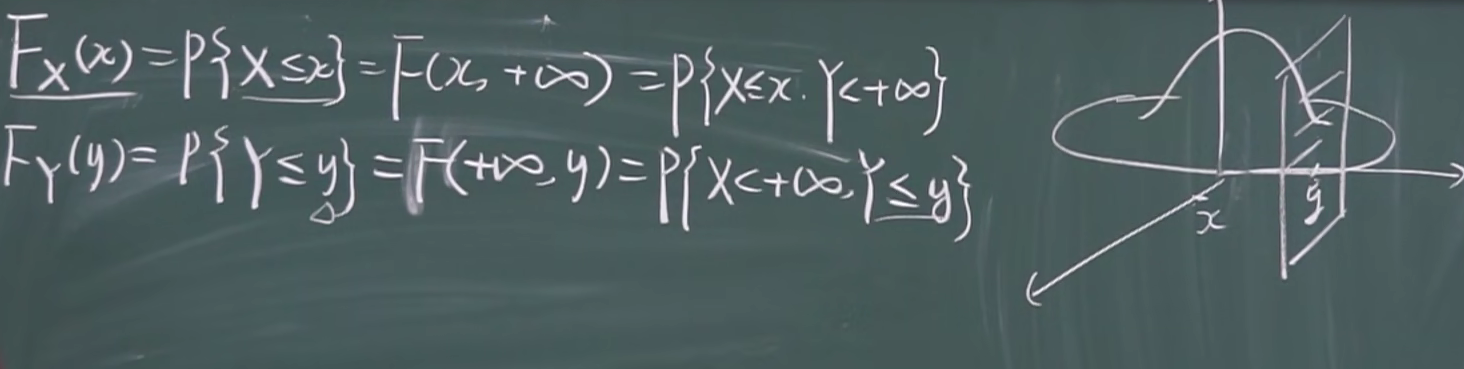 F_X(x)=P{X≤x}=F(x,+∞)=P{X≤x. Y<+∞}
F_Y(y)=P{Y≤y}=F(+∞,y)=P{X<+∞,Y≤y}
x
y